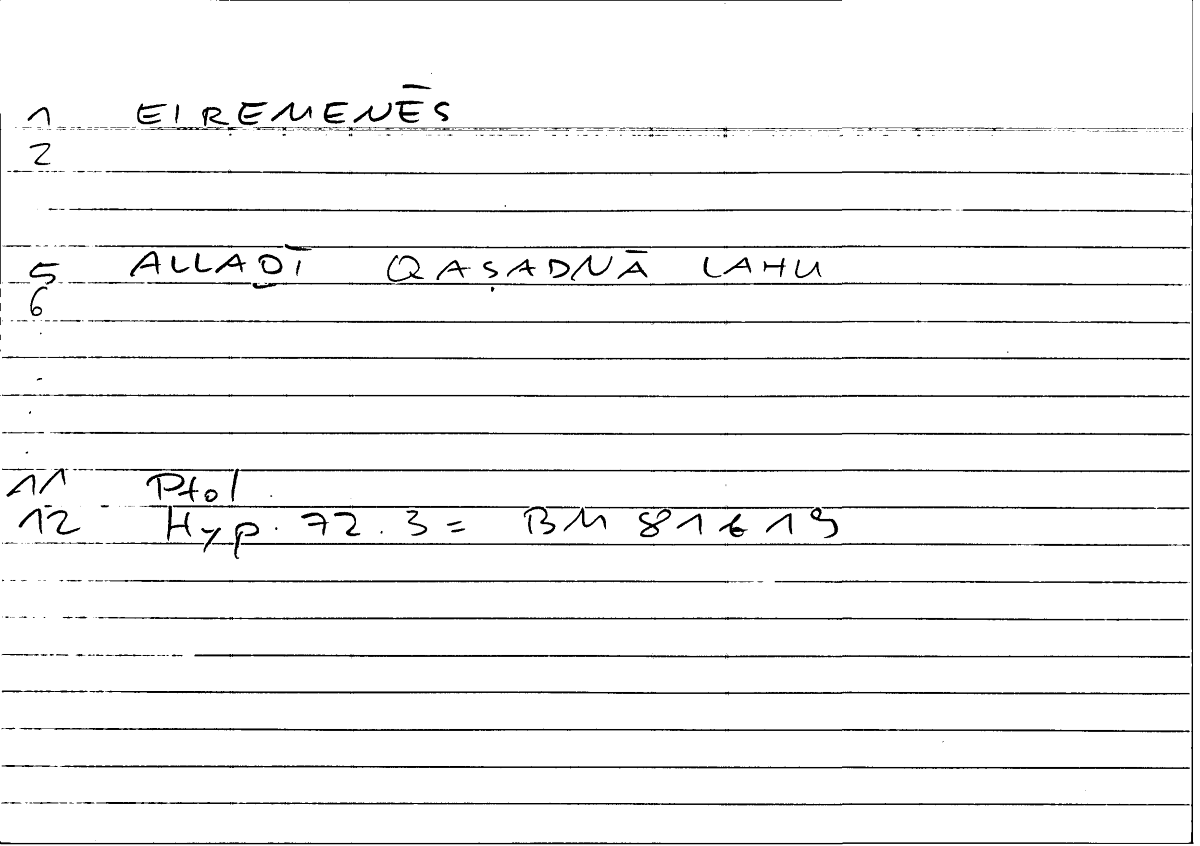 1 EIREMENĒS
2
5 ALLAḎĪ QAṢADNĀ LAHU
6
11 Ptol.
12 Hyp. 72.3 = BM 81 b 19